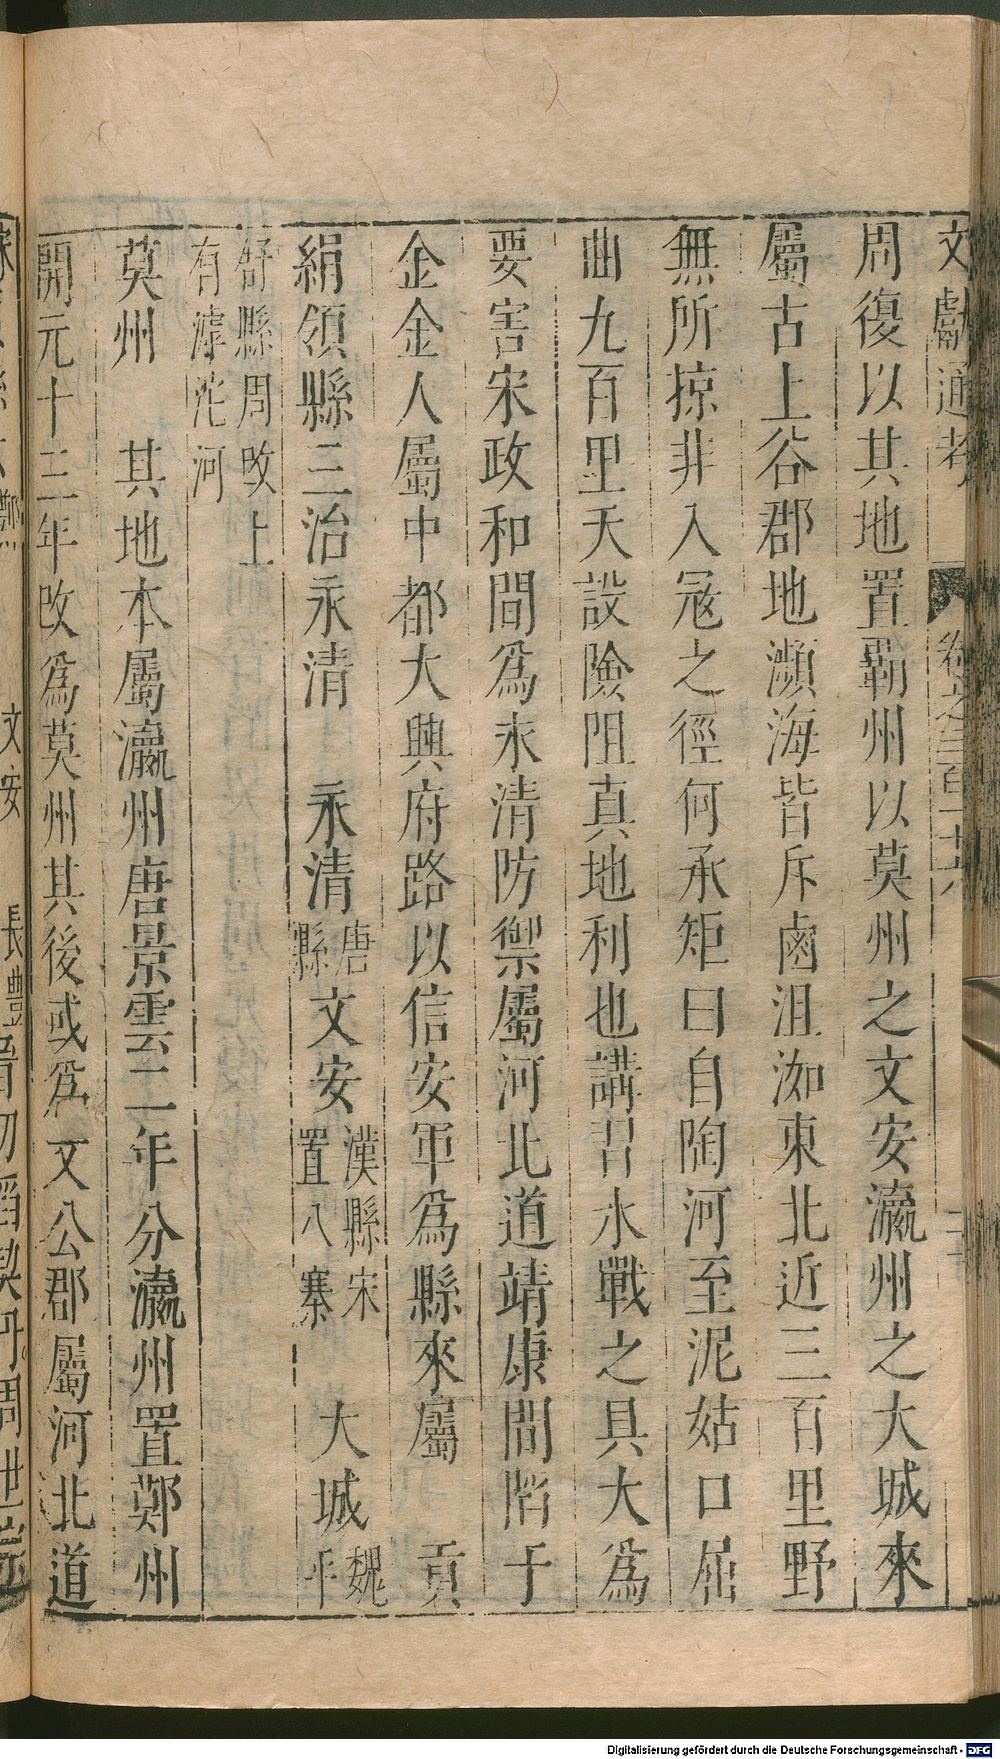 文獻通考 卷之三百十六
周復以其地置霸州以莫州之文安瀛州之大城來
屬古上谷郡地瀕海皆斥鹵沮洳東北近三百里野
無所掠非入冦之徑何承矩曰自陶河至泥姑口屈
曲九百里天設險阻真地利也講習水戰之具大爲
要害宋政和間爲永清防禦屬河北道靖康間䧟于
金金人屬中都大興府路以信安軍爲縣來屬 貢
絹領縣三治永清 永清唐縣文安漢縣宋置八寨 大城魏平
舒縣周改上有滹沱河
莫州 其地本屬瀛州唐景雲二年分瀛州置鄚州
開元十三年改爲莫州其後或爲文公郡屬河北道
Digitalisierung gefördert durch die Deutsche Forschungsgemeinschaft - DFG